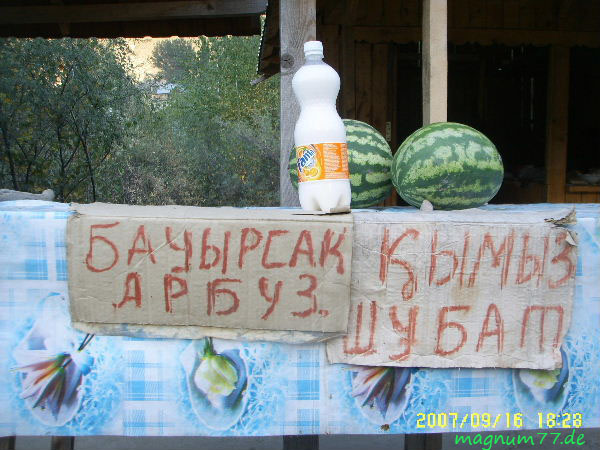 Fanta
БАУЫРСАҚ
АРБУЗ.
ҚЫМЫЗ
ШУБАТ
2007/09/16 18:28
magnum77.de